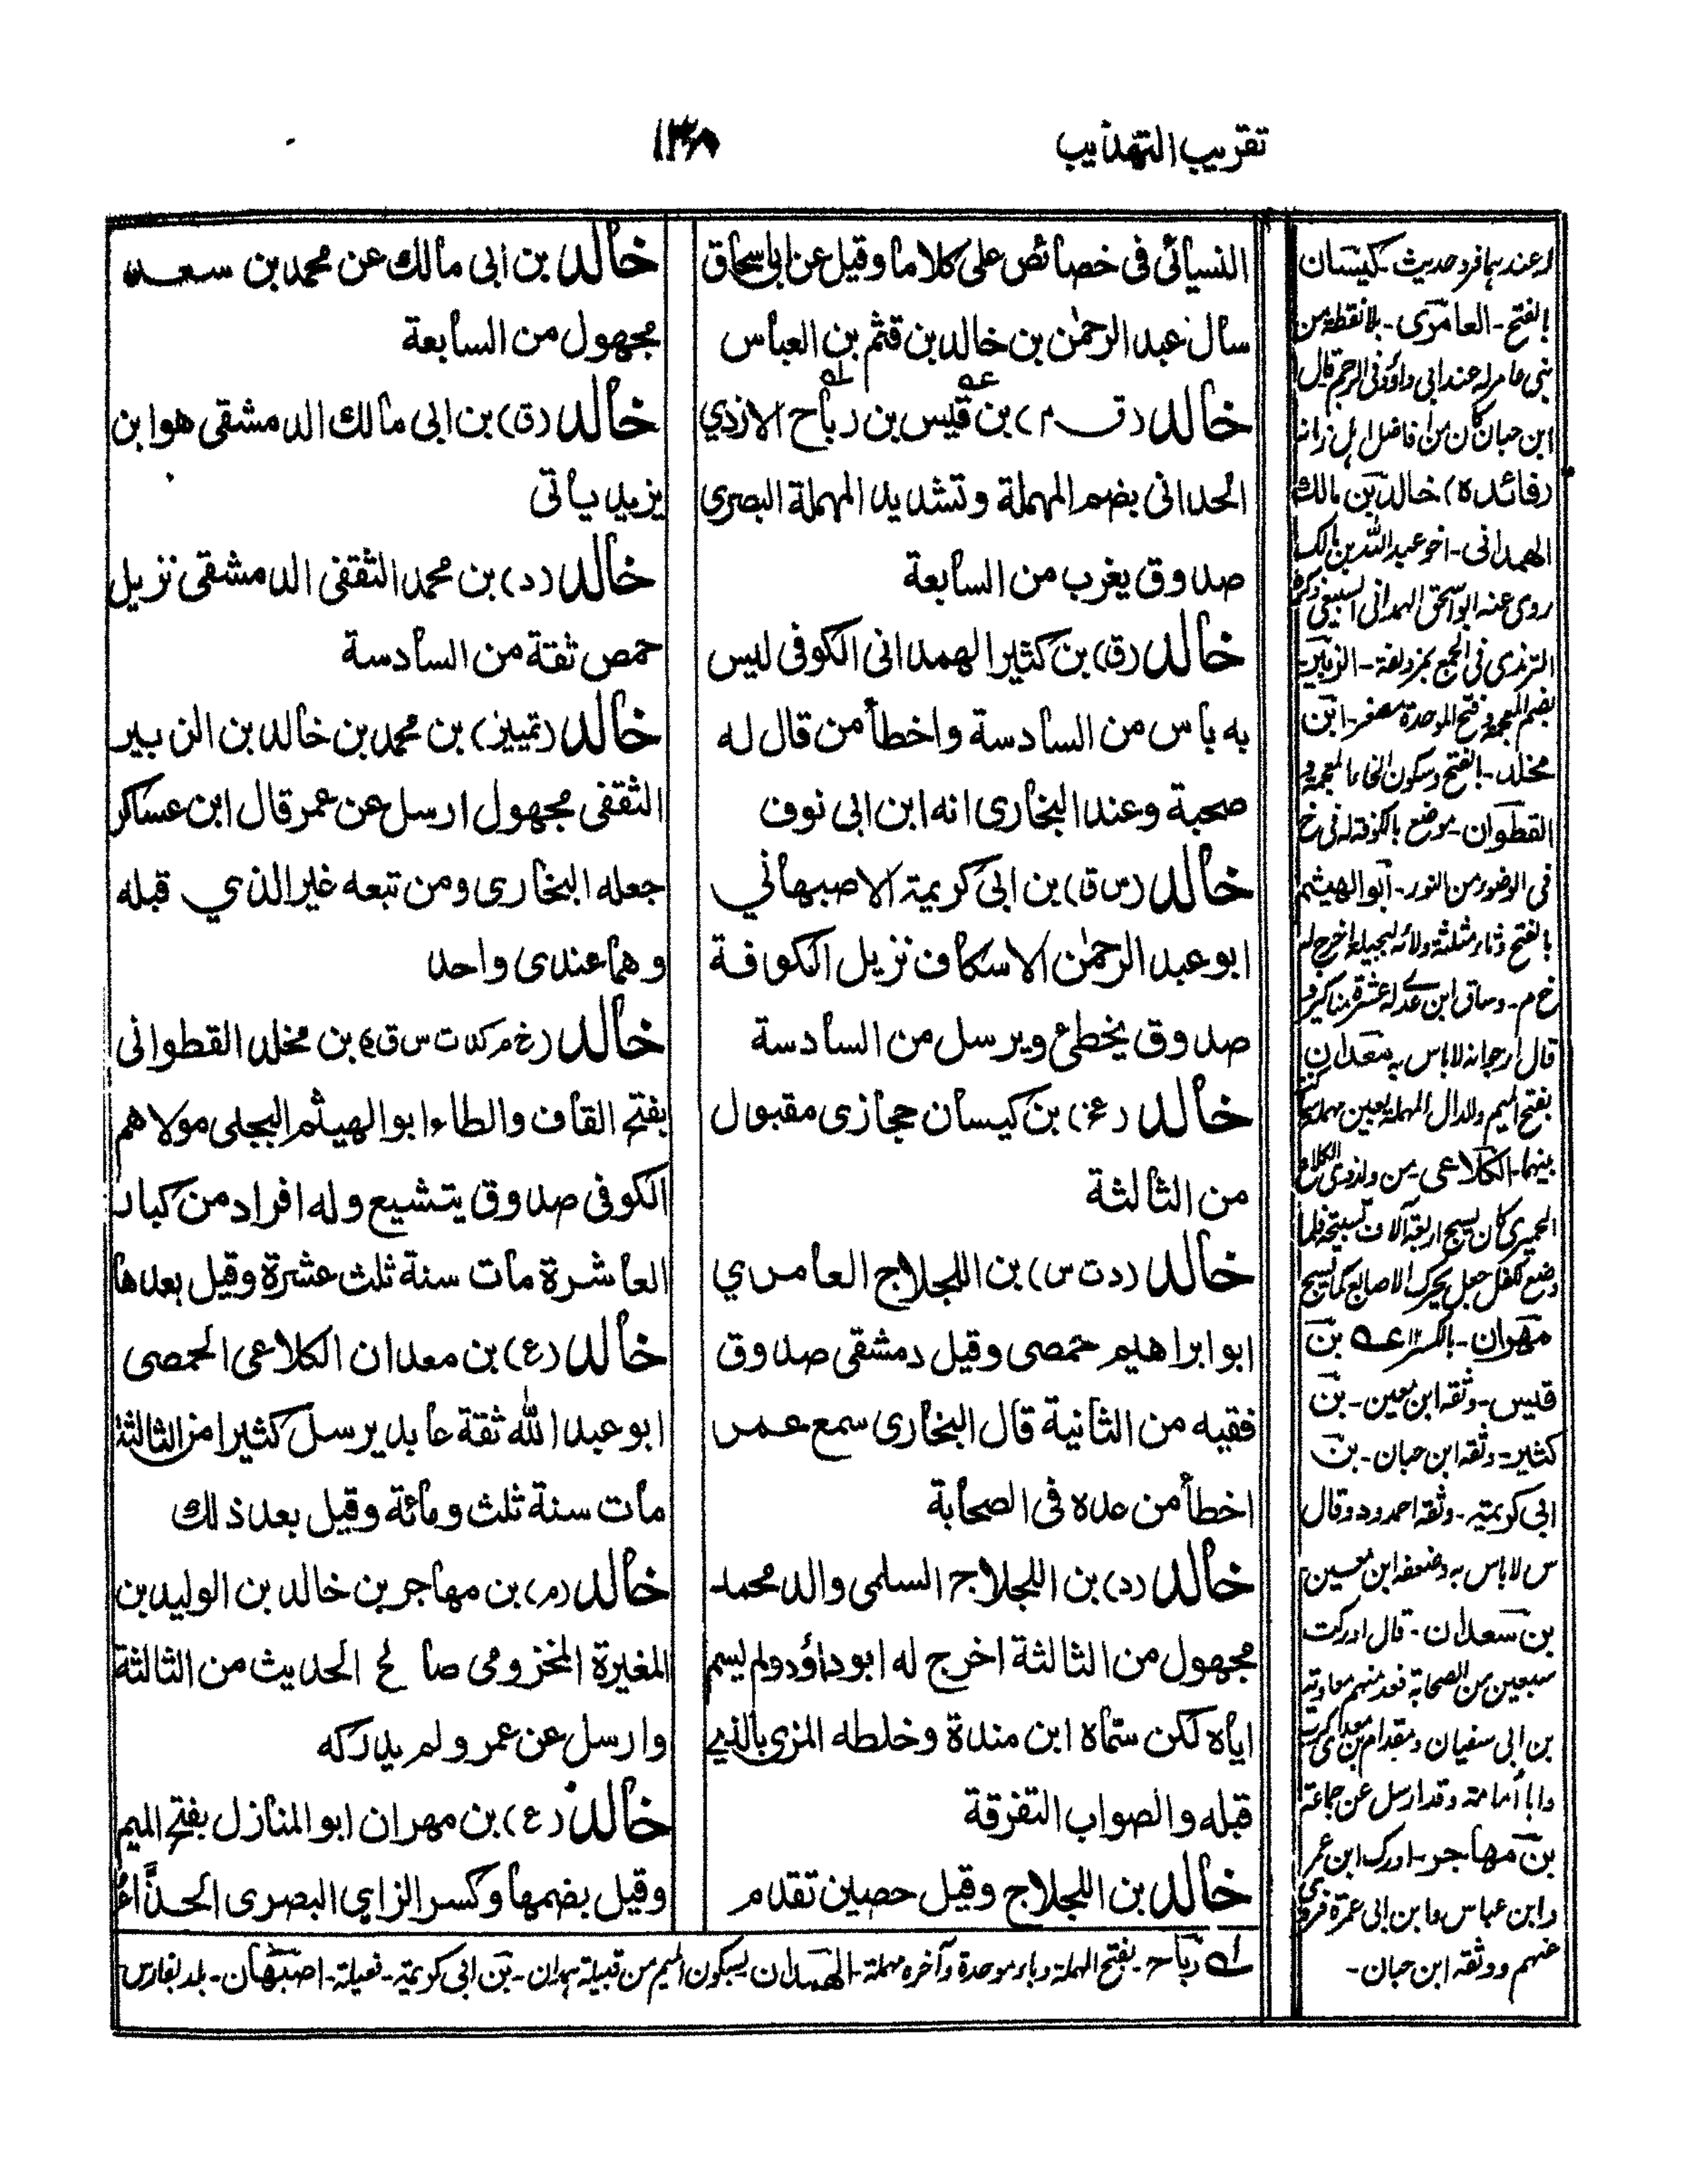 تقريب التهذيب
١٣٨
النسيائى فى خصائص على كلاما وقيل عن ابى اسحاق
سأل عبد الرحمٰن بن خالد بن قثم بن العباس
خالد (ق م) بن قيس بن رباح الازدي
الحدانى بضم المهملة وتشديد المهملة البصرى
صدوق يغرب من السابعة
خالد (ق) بن كثير الهمدانى الكوفى ليس
به باس من السادسة واخطأ من قال له
صحبة وعند البخارى انه ابن ابى نوف
خالد (س ق) بن ابى كريمة الاصبهاني
ابو عبد الرحمٰن الاسكاف نزيل الكوفة
صدوق يخطئ ويرسل من السادسة
خالد (عخ) بن كيسان حجازى مقبول
من الثالثة
خالد (د ت س) بن اللجلاج العامري
ابو ابراهيم حمصى وقيل دمشقى صدوق
فقيه من الثانية قال البخارى سمع عمر
اخطأ من عده فى الصحابة
خالد (د) بن اللجلاج السلمى والد محمد
مجهول من الثالثة اخرج له ابو داؤد ولم يسم
اياه لكن سمّاه ابن مندة وخلطه المزى بالذي
قبله والصواب التفرقة
خالد بن اللجلاج وقيل حصين تقدم
خالد بن ابى مالك عن محمد بن سعد
مجهول من السابعة
خالد (ق) بن ابى مالك الدمشقى هو ابن
يزيد ياتى
خالد (د) بن محمد الثقفى الدمشقى نزيل
حمص ثقة من السادسة
خالد (تمييز) بن محمد بن خالد بن الزبير
الثقفى مجهول ارسل عن عمر قال ابن عساكر
جعله البخارى ومن تبعه غير الذي قبله
وهما عندى واحد
خالد (خ م كد ت س ق) بن مخلد القطوانى
بفتح القاف والطاء ابو الهيثم البجلى مولاهم
الكوفى صدوق يتشيع وله افراد من كبار
العاشرة مات سنة ثلث عشرة وقيل بعدها
خالد (ع) بن معدان الكلاعى الحمصى
ابو عبد الله ثقة عابد يرسل كثيرا من الثالثة
مات سنة ثلث ومائة وقيل بعد ذلك
خالد (م) بن مهاجر بن خالد بن الوليد بن
المغيرة المخزومى صالح الحديث من الثالثة
وارسل عن عمر ولم يدركه
خالد (ع) بن مهران ابو المنازل بفتح الميم
وقيل بضمها وكسر الزاي البصرى الحذّاء
عند بها فرد حديث كيسان
بالفتح - العامرى - بلا نقطة من
بنى عامر له عند ابى داؤد فى الرجم قال
ابن حبان كان من افاضل اهل زمانه
(فائده) خالد بن مالك
الهمدانى - اخو عبد الله بن مالك
روى عنه ابو اسحق الهمدانى السبيعى
الترمذى فى الجمع بمزدلفة - الزبير
بضم المعجمة وفتح الموحدة مصغر - ابن
مخلد - بالفتح وسكون الخاء المعجمة و
القطوان - موضع بالكوفة له فى خ
فى الوضوء من النور - ابو الهيثم
بالفتح وثاء مثلثة ولائه لبجيلة اخرج له
خ م - وساق ابن عدى له عشرة مناكير و
قال ارجو انه لا باس به معدان
بفتح الميم والدال المهملة بعين مهملة
بينهما - الكلاعى - من ولد ذى الكلاع
الحميرى كان يسبح اربعة آلاف تسبيحة فلما
وضع للغسل جعل يحرك الاصابع كما يسبح
مهران - بالكسر ١٢ عه بن
قيس - وثقه ابن معين - بن
كثير - وثقه ابن حبان - بن
ابى كريمة - وثقه احمد ود وقال
س لا باس به وضعفه ابن معين
بن سعدان - قال ادركت
سبعين من الصحابة فعد منهم معاوية
بن ابى سفيان ومقدام بن معديكرب
وابا أمامة وقد ارسل عن جماعة
بن مهاجر - ادرك ابن عمر
وابن عباس وابن ابى عمرة فروى
عنهم ووثقه ابن حبان -
له رباح - بفتح المهملة وباء موحدة وآخره مهملة - الهمدان بسكون الميم من قبيلة همدان - بن ابى كريمة - فعيلة - اصبهان - بلد بفارس